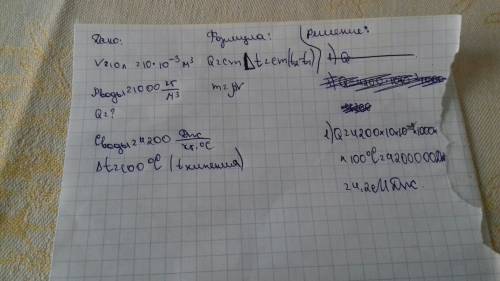 Дано:
V=10л=10·10⁻³ м³
ρводы=1000 кг/м³
Q=?
Cводы=4200 Дж/кг·°С
Δt=100°С (t кипения)
Формула:
Q=cmΔt=cm(t₂-t₁)
m=ρV
Решение:
1) Q
1) Q=4200×10×10⁻³×1000×
×100°С=4200000Дж
=4,2 МДж.